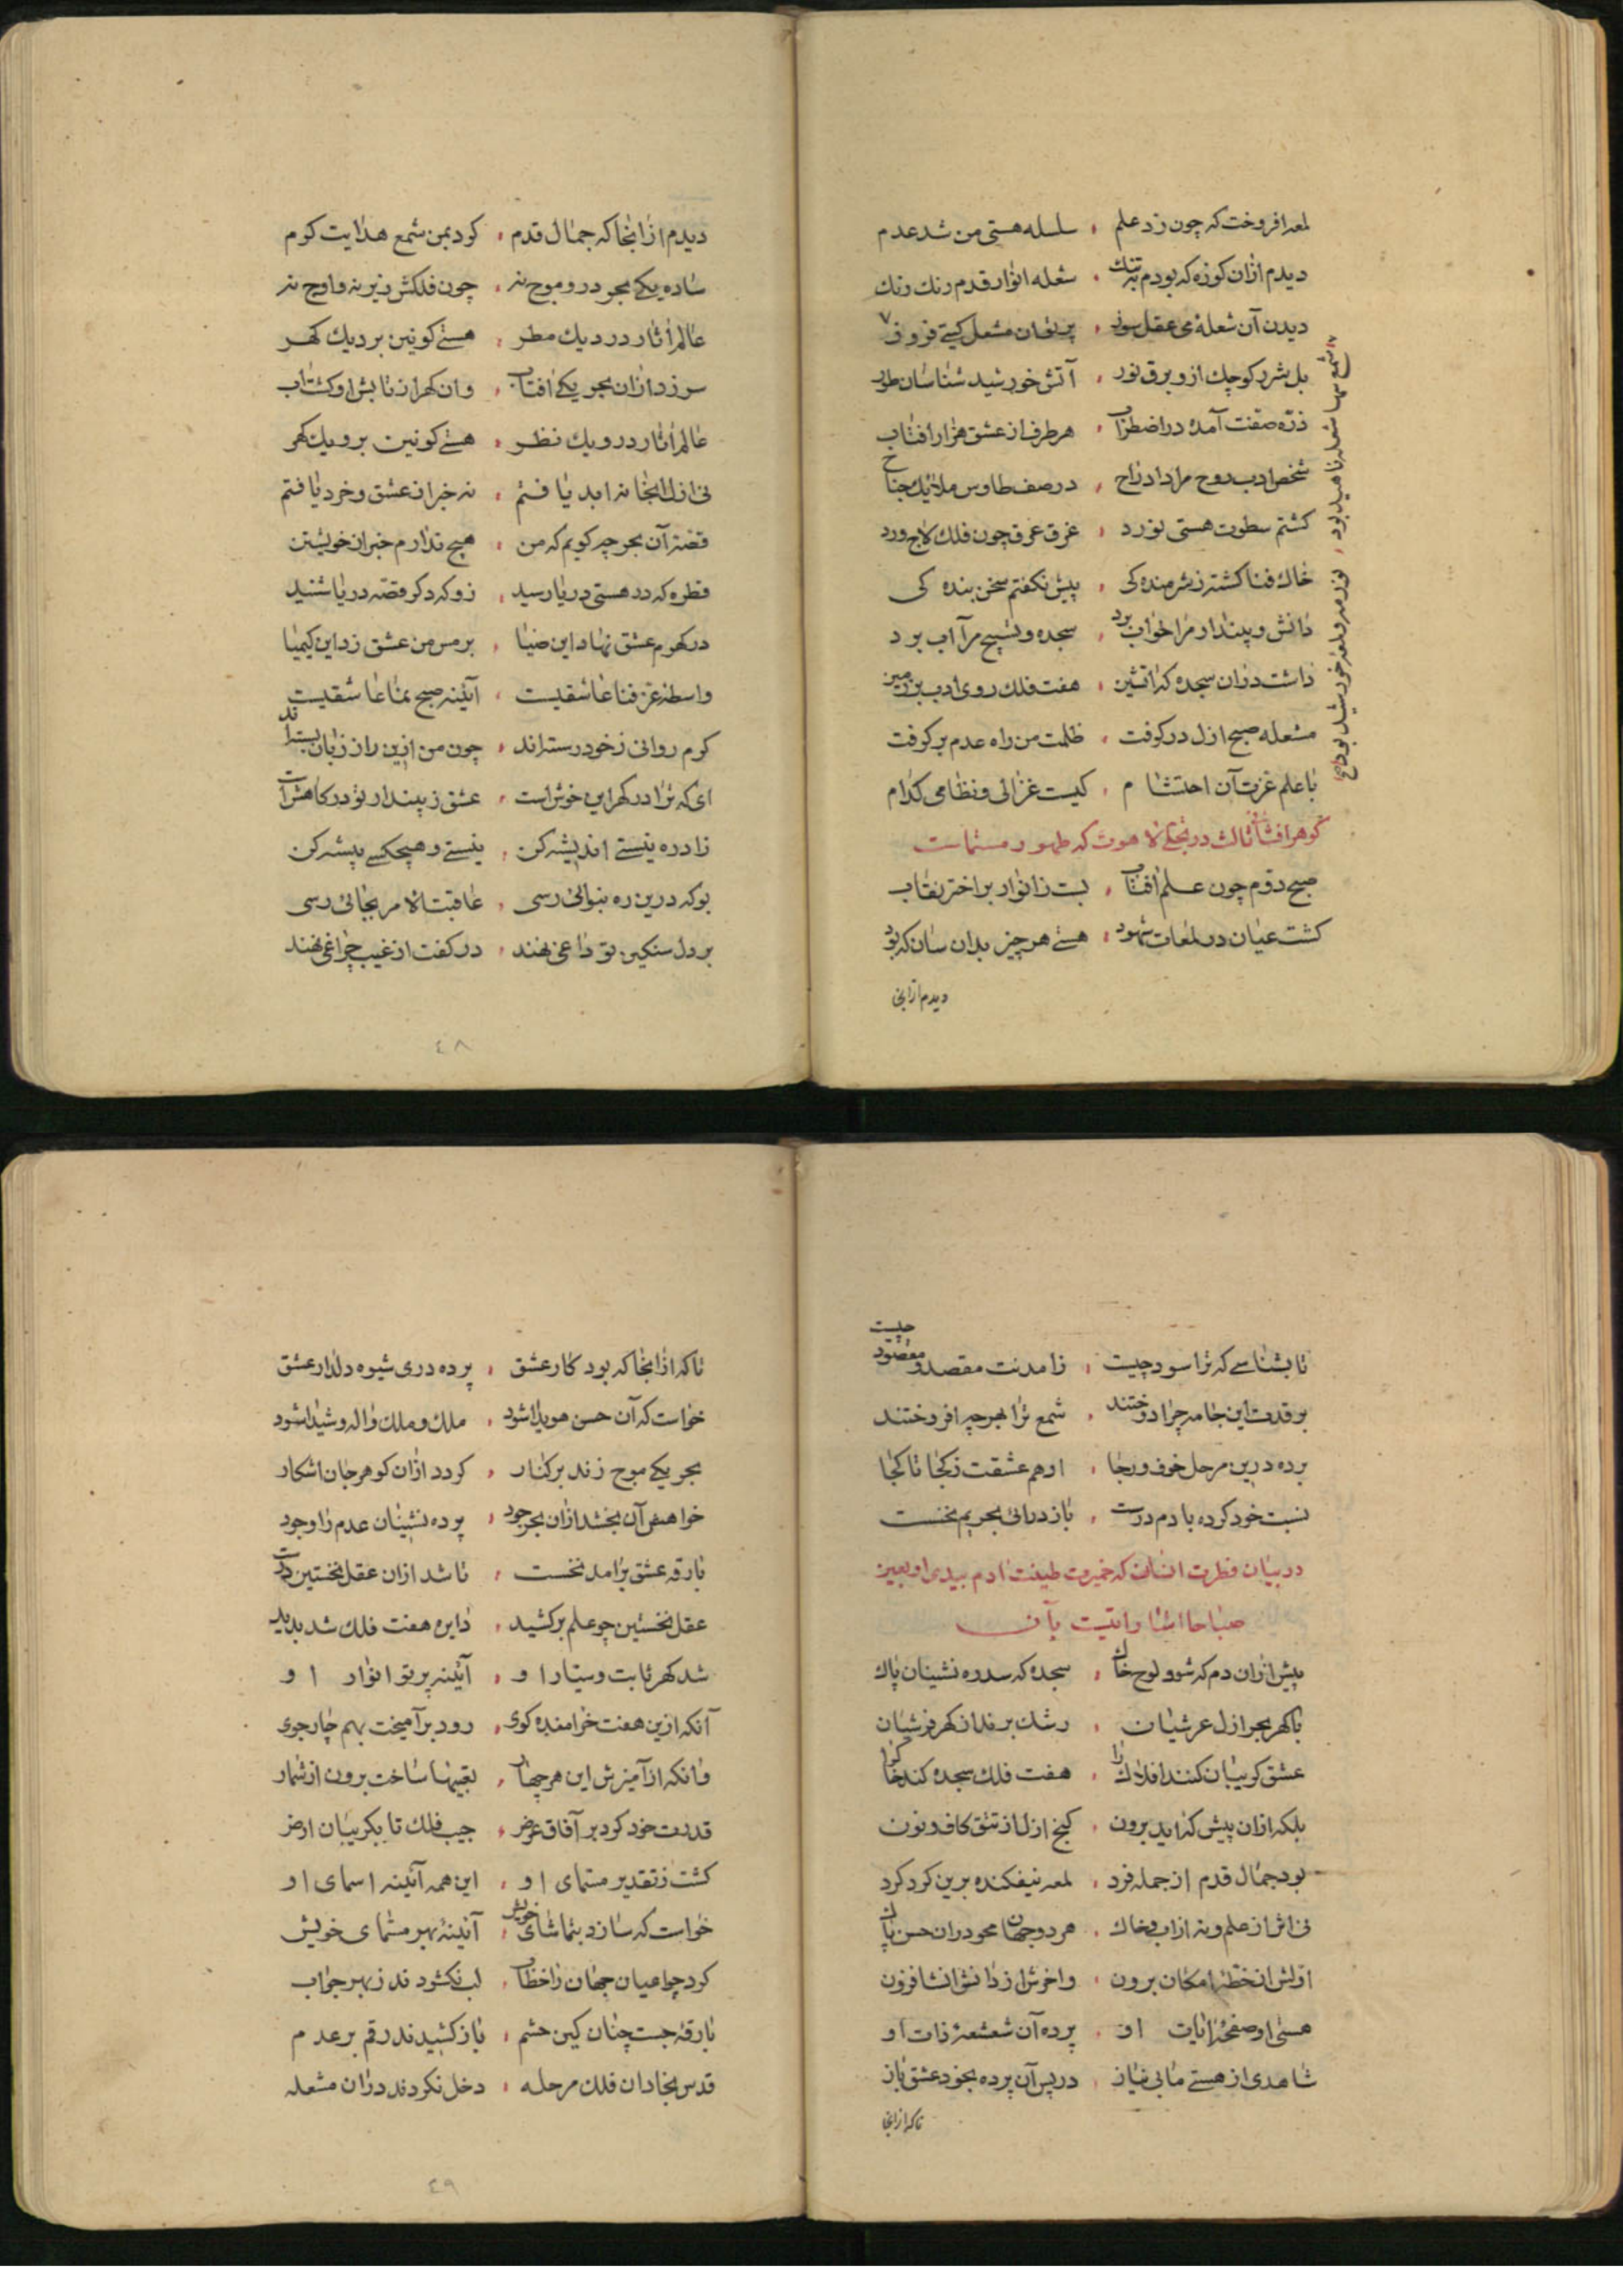 لمعه افروخت که چون زد علم ، سلسله هستی من شد عدم
دیدم ازان کوزه که بودم به تنك ، شعله انوار قدم رنك رنك
دیدن آن شعلهٔ می عقل سوز ، پرتوان مشعل کیتی فروز
بل شرر کوچك ازو برق نور ، آتش خورشید شناسان طور
ذره صفت آمده در اضطراب ، هر طرف از عشق هزار افتاب
شخص ادب روح مرا داد راح ، در صف طاوس ملایك جناح
کشتم سطوت هستی نورد ، غرق عرق چون فلك لاجورد
خاك فنا کشته ز شرمنده کی ، پیش نکفتم سخن بنده کی
دانش و پندار مرا خواب برد ، سجده و تسبیح مرا آب برد
داشت دران سجده که اتشین ، هفت فلك روی ادب بر زمین
مشعله صبح ازل در کرفت ، ظلمت من راه عدم بر کرفت
با علم عزت آن احتشام ، کیست غزالی و نظامی کدام
شمع سها شعله ناهید بود ، نور مه و لمعهٔ خورشید بود
کوهر افشانی ثالث در تجلی لاهوت که ظهور مسماست
صبح دوم چون علم افتاب ، بست ز انوار بر اختر نقاب
کشت عیان در لمعات شهود ، هستی هر چیز بدان سان که بود
دیدم ازانجا
دیدم ازانجا که جمال قدم ، کرد بمن شمع هدایت کرم
ساده یکی بحر درو موج نه ، چون فلکش زیر نه و اوج نه
عالم اثار در دیك مطر ، هستی کونین بر دیك کهر
سر زد ازان بحر یکی افتاب ، وان کهر از تابش او کشت اب
عالم اثار درو یك نظر ، هستی کونین برو یك کهر
نی ازل انجا نه ابد یافتم ، نه خبر از عشق و خرد یافتم
قصهٔ آن بحر چه کویم که من ، هیچ ندارم خبر از خویشتن
قطره که در هستی دریا رسید ، زو که دکر قصه دریا شنید
در کهرم عشق نهاد این ضیا ، بر مس من عشق زد این کیمیا
واسطه عز فنا عاشقیست ، آینه صبح نما عاشقیست
کرم روانی ز خود رسته اند ، چون من ازین راز زبان بسته اند
ای که ترا در کهر این خوش است ، عشق ز پندار تو در کاهش است
زاد ره نیستی اندیشه کن ، نیستی و هیچکسی پیشه کن
بو که درین ره بنوائی رسی ، عاقبت الامر بجائی رسی
بر دل سنکین تو داغی نهند ، در کفت از غیب چراغی نهند
٤٨
تا بشناسی که ترا سود چیست ، ز امدنت مقصد و مقصود چیست
بر قدت این جامه چرا دوختند ، شمع ترا بهر چه افروختند
برده درین مرحل خوف و رجا ، او هم عشقت ز کجا تا کجا
نسبت خود کرده بادم درست ، باز درائی بحریم نخست
در بیان فطرت انسان که خمرت طینت ادم بیدی اربعین
صباحا
پیش ازان دم که شود لوح خاك ، سجده که سدره نشینان پاك
با کهر بحر ازل عرشیان ، رشك برند از کهر فرشیان
عشق کریبان کند افلاك را ، هفت فلك سجده کند خاك را
بلکه ازان پیش که اید برون ، کنج ازل از تتق کاف و نون
بود جمال قدم از جمله فرد ، لمعه نیفکنده برین کرد کرد
نی اثر از علم و نه از اب و خاك ، هر دو جهان محو دران حسن پاك
اولش از خطهٔ امکان برون ، واخرش از دانش انشا فزون
هستی او صفحهٔ ایات او ، پرده آن شعشعهٔ ذات او
شاهدی از هستی ما بی نیاز ، در پس آن پرده بخود عشق باز
تا که ازانجا
تا که ازانجا که بود کار عشق ، پرده دری شیوه دلدار عشق
خواست که آن حسن هویدا شود ، ملك و ملك واله و شیدا شود
بحر یکی موج زند بر کنار ، کردد ازان کوهر جان اشکار
خواهش آن بخشد ازان بحر جود ، پرده نشینان عدم را وجود
بارقه عشق برامد نخست ، تا شد ازان عقل نخستین درست
عقل نخستین چو علم بر کشید ، دایره هفت فلك شد پدید
شد کهر ثابت و سیار او ، آینه پرتو انوار او
آنکه ازین هفت خرامنده کوی ، رود بر آمیخت بهم چار جوی
وانکه از آمیزش این هر چهار ، تعبیها ساخت برون از شمار
قدرت خود کرد بر آفاق عرض ، جیب فلك تا بکریبان ارض
کشت ز تقدیر مسمای او ، این همه آینه اسمای او
خواست که سازد بتماشای خویش ، آینهٔ بهر مسمای خویش
کرد چو اعیان جهان را خطاب ، لب نکشودند ز بهر جواب
بارقهٔ جست چنان کین حشم ، باز کشیدند رقم بر عدم
قدس نجادان فلك مرحله ، دخل نکردند دران مشعله
٤٩